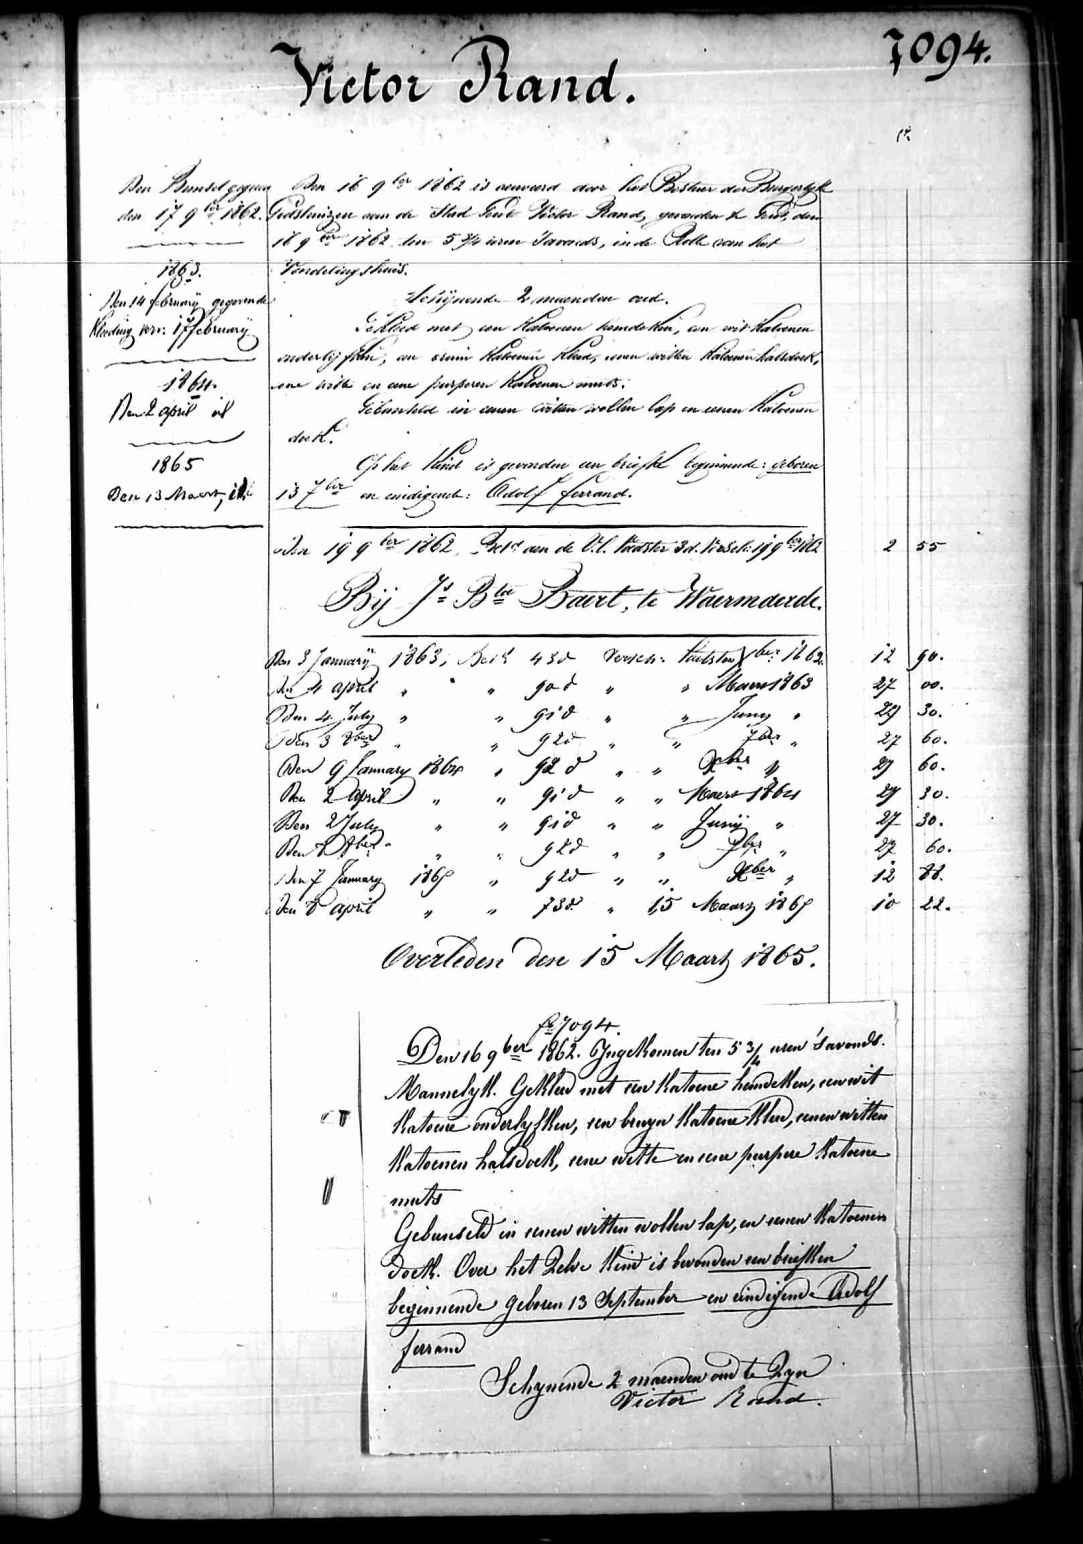 7094.
Victor Rand.
fr.
Den Bunsel gegeven
den 17 9ber 1862.
1863.
Den 14 february gegevene
Kleeding ver: 17 february
1864.
Den 2 april id
1865
Den 13 Maert, id.
Den 16 9ber 1862 is aenveerd door het Bestuer der Burgerlyk
Godshuizen aen de Stad Gent Victor Rand, gevonden te Gent, den
16 9ber 1862 ten 5 3/4 uren 'savonds, in de Rolle van het
Vondelingshuis.
Schijnende 2 maenden oud.
Gekleed met een Katoenen hemdeken, een wit Katoenen
onderlijfken, een bruin Katoenen Kleed, eenen witten Katoenen halsdoek,
eene witte en eene purperen Katoenen muts.
Gebunseld in eenen witten wollen lap en eenen Katoenen
doek.
Op het Kind is gevonden een briefke beginnende: geboren
13 7ber en eindigende: Adolf ferrand.
Den 19 9ber 1862 Bet.d aen de 3d. 19 9ber 1862 2 55
Bij Js Bte Baert, te Waermaerde.
Den 3 January 1863, 43d versch: xber 1862. 12 90.
Den 4 april " " " 90d " " Maert 1863 27 00.
Den 4 July " " 91d " " Juny " 27 30.
Den 3 8ber " " 92d " " 7ber " 27 60.
Den 9 January 1864 " 92d " " Xber " 27 60.
Den 2 april " " 91d " " Maert 1864 27 30.
Den 2 July " " 91d " " Junij " 27 30.
Den 8 8ber " " 92d " " 7ber " 27 60.
Den 7 January 1865 " 92d " " Xber " 12 88.
Den 8 april " " 73d " 15 Maart 1865 10 22.
Overleden den 15 Maart 1865.
fo 7094.
Den 16 9ber 1862. Ingekomen ten 5 3/4 uren 'savonds.
Mannelyk. Gekleed met een Katoene hemdeken, een wit
Katoene onderlyfken, een bruyn Katoene Kleed, eenen witten
Katoenen halsdoek, eene witte en eene purpere Katoene
muts
Gebunseld in eenen witten wollen lap, en eenen Katoenen
doek. Over het Zelve Kind is bevonden een briefken
beginnende geboren 13 September en eindigende Adolf
ferrand
Schynende 2 maenden oud te Zyn
Victor Rand.